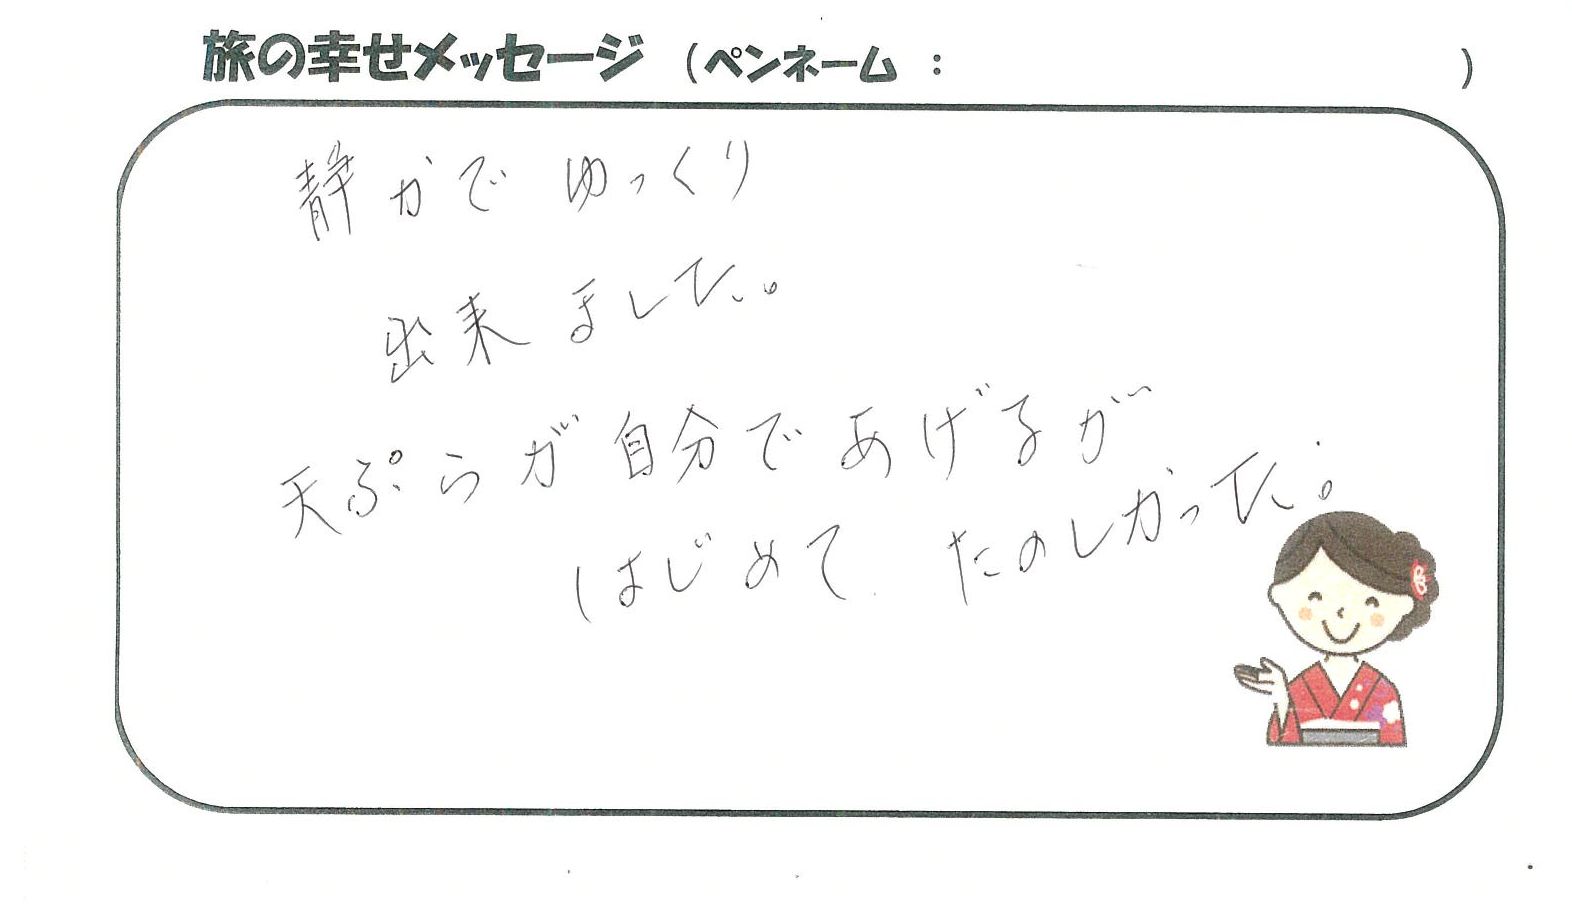 旅の幸せメッセージ （ペンネーム ： ）
静かで ゆっくり
出来ました。
天ぷらが自分であげるが
はじめて たのしかった。